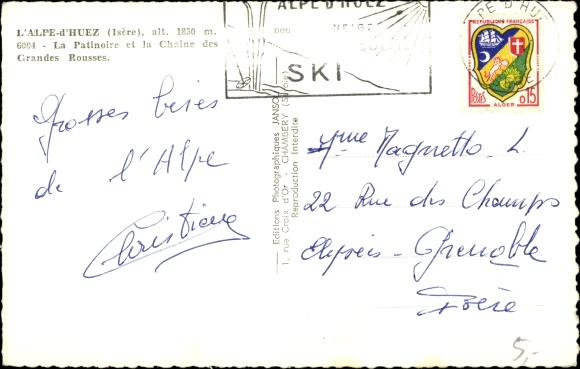 L'ALPE-d'HUEZ (Isère), alt. 1850 m.
6004 - La Patinoire et la Chaîne des
Grandes Rousses.
ALPE D'HUEZ
NEIGE
SOLEIL
SKI
PE D'HU
RÉPUBLIQUE FRANÇAISE
POSTES
0,15
ALGER
Grosses bises
de l'Alpe
Christiane
Editions Photographiques JANSOL
1, rue Croix d'Or - CHAMBÉRY (Savoie)
Reproduction Interdite
Mme Magnetto L.
22 Rue des Champs
Elysées - Grenoble
Isère
5,-